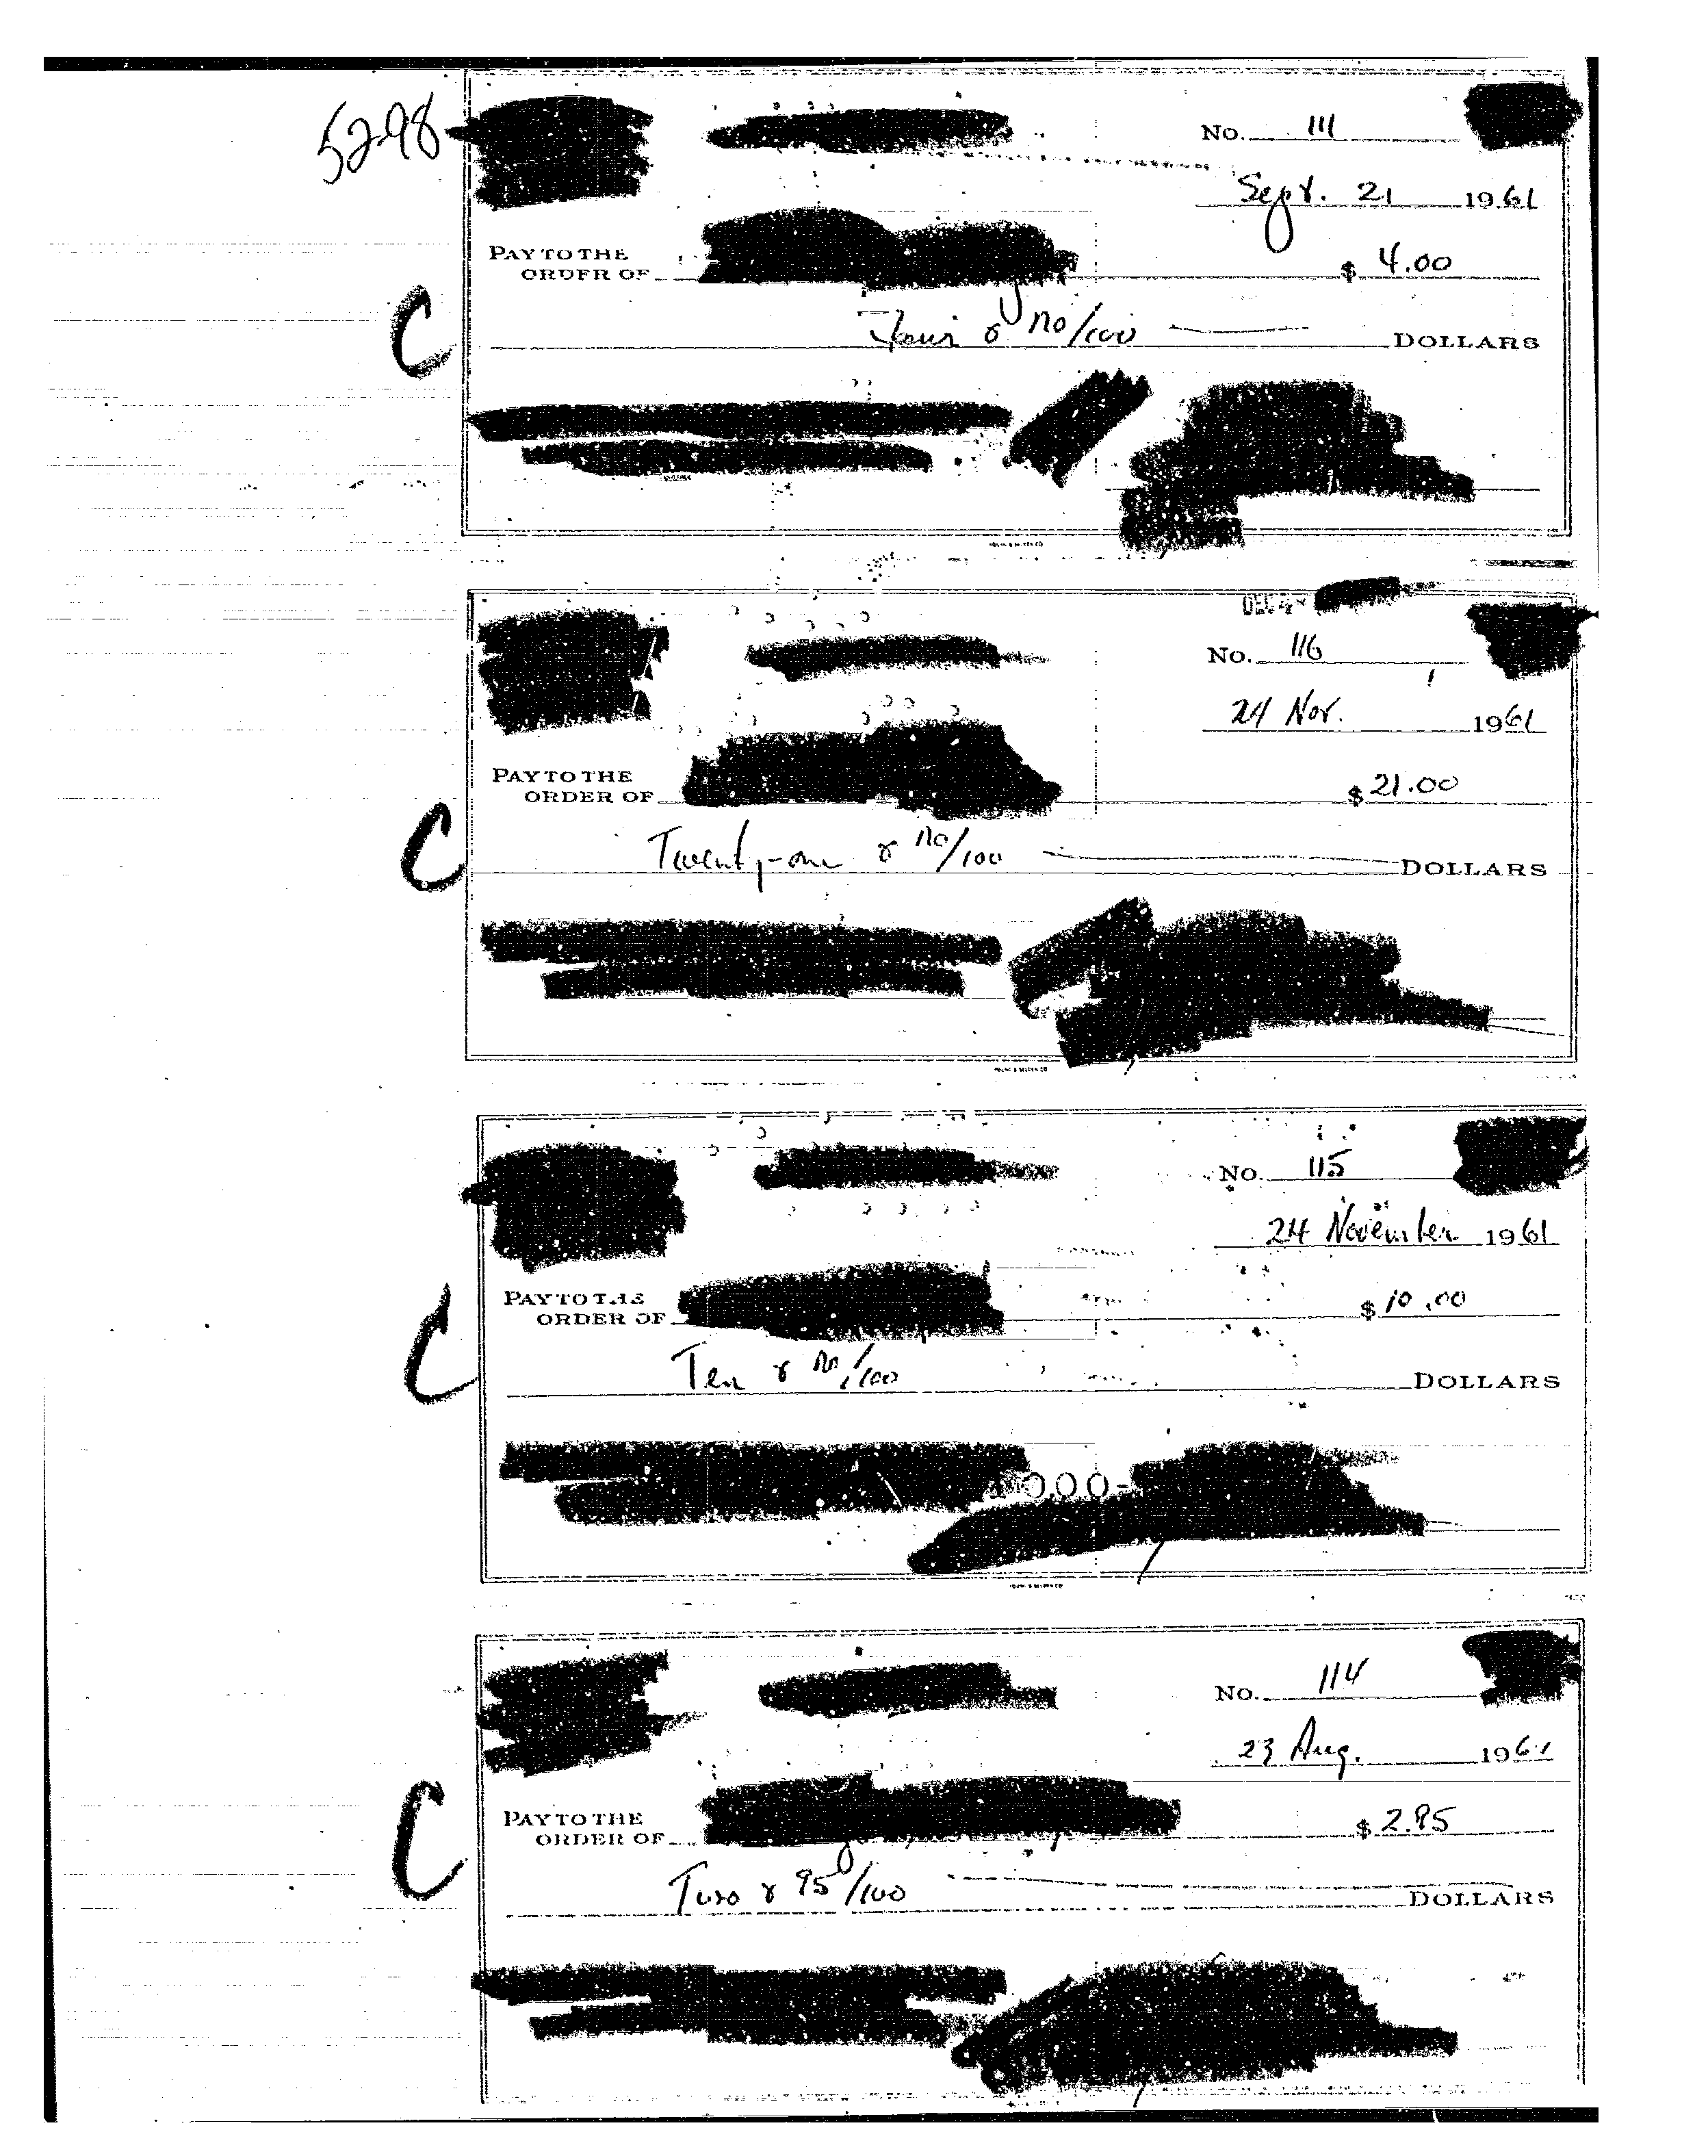 5298
No. 111
Sept. 21 1961
PAY TO THE
ORDER OF $ 4.00
Four & no/100 DOLLARS
C
No. 116
24 Nov. 1961
PAY TO THE
ORDER OF $ 21.00
Twenty-one & no/100 DOLLARS
C
No. 115
24 November 1961
PAY TO THE
ORDER OF $ 10.00
Ten & no/100 DOLLARS
C
000-
No. 114
23 Aug. 1961
PAY TO THE
ORDER OF $ 2.95
Two & 95/100 DOLLARS
C